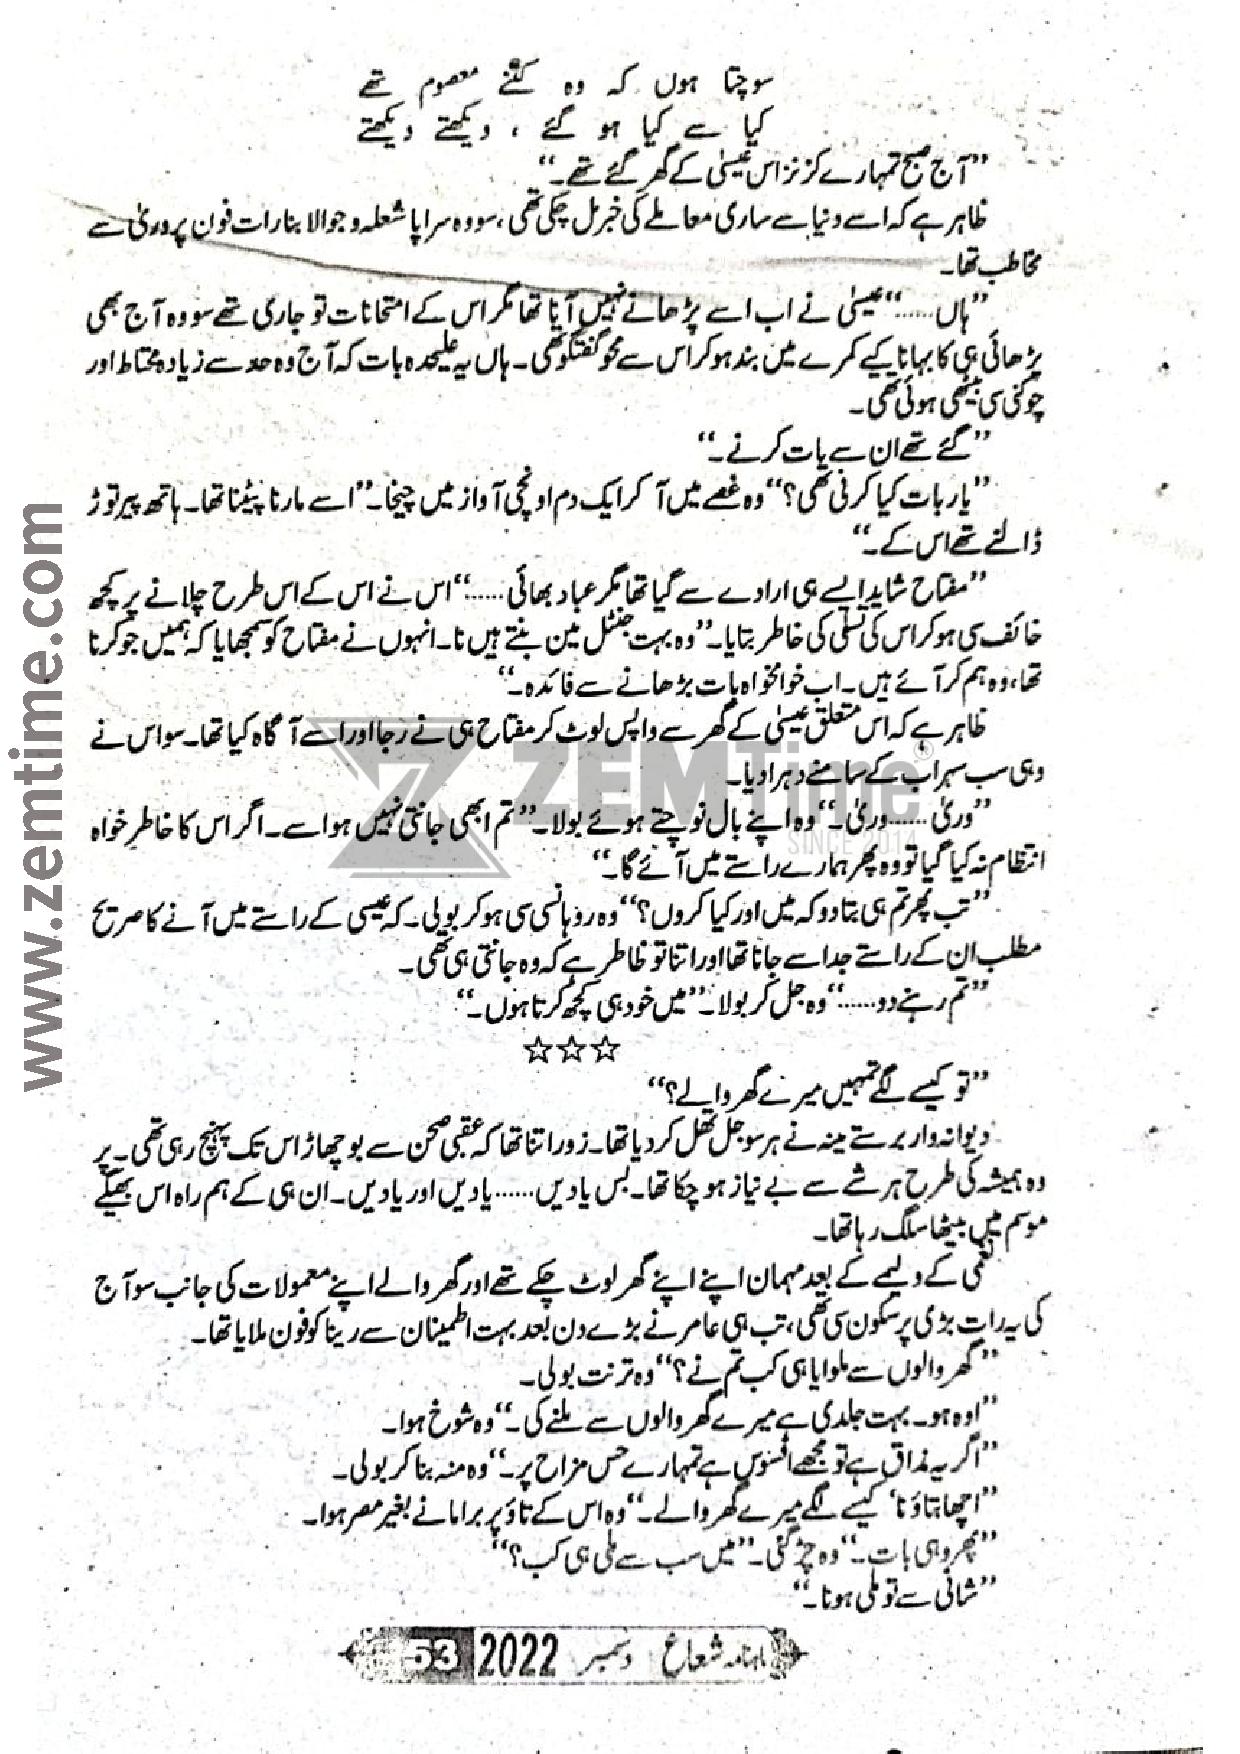 سوچتا ہوں کہ وہ کتنے معصوم تھے
کیا سے کیا ہو گئے ، دیکھتے دیکھتے
”آج صبح تمہارے کزنز اس عیسیٰ کے گھر گئے تھے۔“
ظاہر ہے کہ اسے دنیا سے ساری معاملے کی خبر مل چکی تھی، سو وہ سراپا شعلہ و جوالا بنا رات فون پر وریٰ سے
مخاطب تھا۔
”ہاں......“ عیسیٰ نے اب اسے پڑھانے نہیں آنا تھا مگر اس کے امتحانات تو جاری تھے سو وہ آج بھی
پڑھائی ہی کا بہانا کیے کمرے میں بند ہو کر اس سے محو گفتگو تھی۔ ہاں یہ علیحدہ بات کہ آج وہ حد سے زیادہ محتاط اور
چوکنی سی بیٹھی ہوئی تھی۔
”گئے تھے ان سے بات کرنے۔“
”یار بات کیا کرنی تھی؟“ وہ غصے میں آ کر ایک دم اونچی آواز میں چیخا۔ ”اسے مارنا پیٹنا تھا۔ ہاتھ پیر توڑ
ڈالنے تھے اس کے۔“
”مفتاح شاید ایسے ہی ارادے سے گیا تھا مگر عباد بھائی......“ اس نے اس کے اس طرح چلانے پر کچھ
خائف سی ہو کر اس کی تسلی کی خاطر بتایا۔ ”وہ بہت جنٹل مین بنتے ہیں نا۔ انہوں نے مفتاح کو سمجھایا کہ ہمیں جو کرنا
تھا، وہ ہم کر آئے ہیں۔ اب خوامخواہ بات بڑھانے سے فائدہ۔“
ظاہر ہے کہ اس متعلق عیسیٰ کے گھر سے واپس لوٹ کر مفتاح ہی نے رجا اور اسے آگاہ کیا تھا۔ سو اس نے
وہی سب سہراب کے سامنے دہرا دیا۔
”وریٰ...... وریٰ۔“ وہ اپنے بال نوچتے ہوئے بولا۔ ”تم ابھی جانتی نہیں ہو اسے۔ اگر اس کا خاطر خواہ
انتظام نہ کیا گیا تو وہ پھر ہمارے راستے میں آئے گا۔“
”تب پھر تم ہی بتا دو کہ میں اور کیا کروں؟“ وہ روہانسی سی ہو کر بولی۔ کہ عیسیٰ کے راستے میں آنے کا صریح
مطلب ان کے راستے جدا سے جانا تھا اور اتنا تو ظاہر ہے کہ وہ جانتی ہی تھی۔
”تم رہنے دو......“ وہ جل کر بولا۔ ”میں خود ہی کچھ کرتا ہوں۔“
☆☆☆
”تو کیسے لگے تمہیں میرے گھر والے؟“
دیوانہ وار برستے مینہ نے ہر سو جل تھل کر دیا تھا۔ زور اتنا تھا کہ عقبی صحن سے بوچھاڑ اس تک پہنچ رہی تھی۔ پر
وہ ہمیشہ کی طرح ہر شے سے بے نیاز ہو چکا تھا۔ بس یادیں...... یادیں اور یادیں۔ ان ہی کے ہم راہ اس بھیگے
موسم میں بیٹھا سلگ رہا تھا۔
نعمی کے ولیمے کے بعد مہمان اپنے اپنے گھر لوٹ چکے تھے اور گھر والے اپنے معمولات کی جانب سو آج
کی یہ رات بڑی پر سکون سی تھی، تب ہی عامر نے بڑے دن بعد بہت اطمینان سے رینا کو فون ملایا تھا۔
”گھر والوں سے ملوایا ہی کب تم نے؟“ وہ ترنت بولی۔
”اوہ ہو۔ بہت جلدی ہے میرے گھر والوں سے ملنے کی۔“ وہ شوخ ہوا۔
”اگر یہ مذاق ہے تو مجھے افسوس ہے تمہارے حس مزاح پر۔“ وہ منہ بنا کر بولی۔
”اچھا بتاؤ نا‘ کیسے لگے میرے گھر والے۔“ وہ اس کے تاؤ پر برا مانے بغیر مصر ہوا۔
”پھر وہی بات۔“ وہ چڑ گئی۔ ”میں سب سے ملی ہی کب؟“
”شانی سے تو ملی ہو نا۔“
ماہنامہ شعاع دسمبر 2022 53
www.zemtime.com
ZEMTime®
SINCE 2014